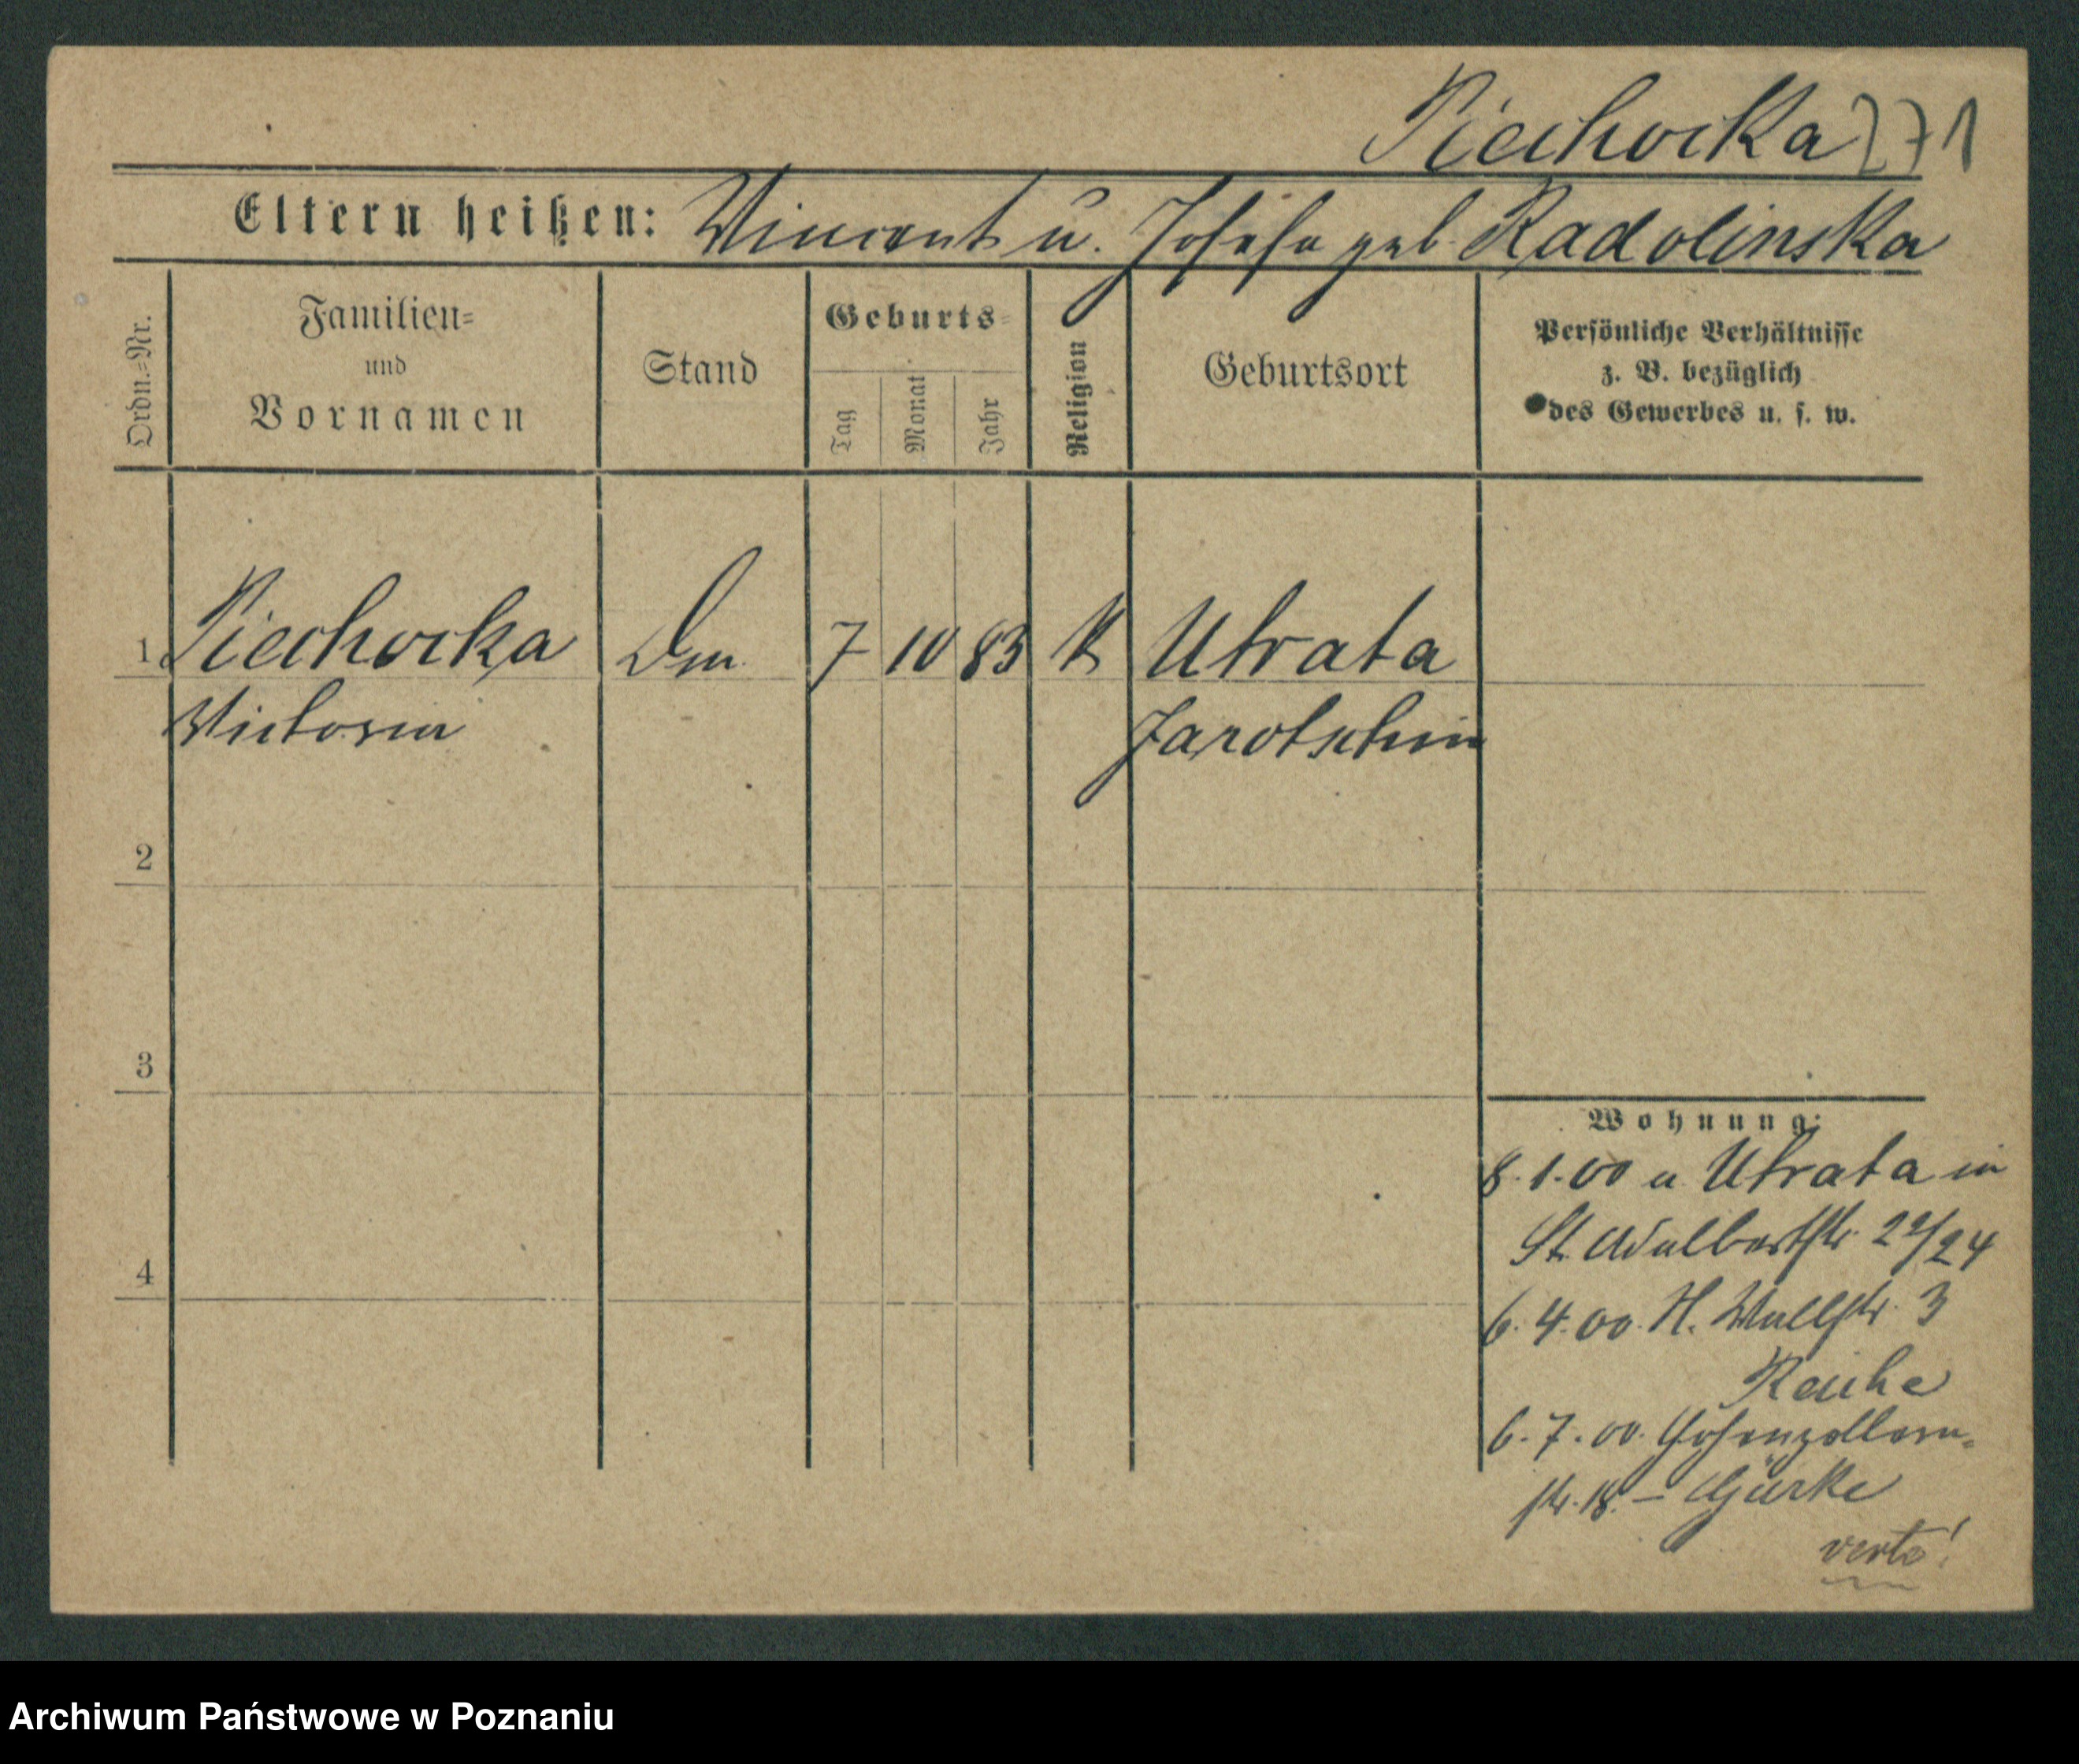 Piechocka 271
Eltern heißen: Vincent u. Josefa geb. Radolinska
Ordn.-Nr.
Familien-
und
Vornamen
Stand
Geburts-
Tag
Monat
Jahr
Religion
Geburtsort
Persönliche Verhältnisse
z. B. bezüglich
des Gewerbes u. s. w.
1 Piechocka 7 10 83 K Utrata
Victoria Jarotschin
2
3
4
Wohnung:
8.1.00 a Utrata in
St. Adalbertstr. 22/24
6.4.00. H. Wallstr. 3
Reiche
6.7.00. Hohenzollern-
str. 18. – Gürke
verte!
Archiwum Państwowe w Poznaniu